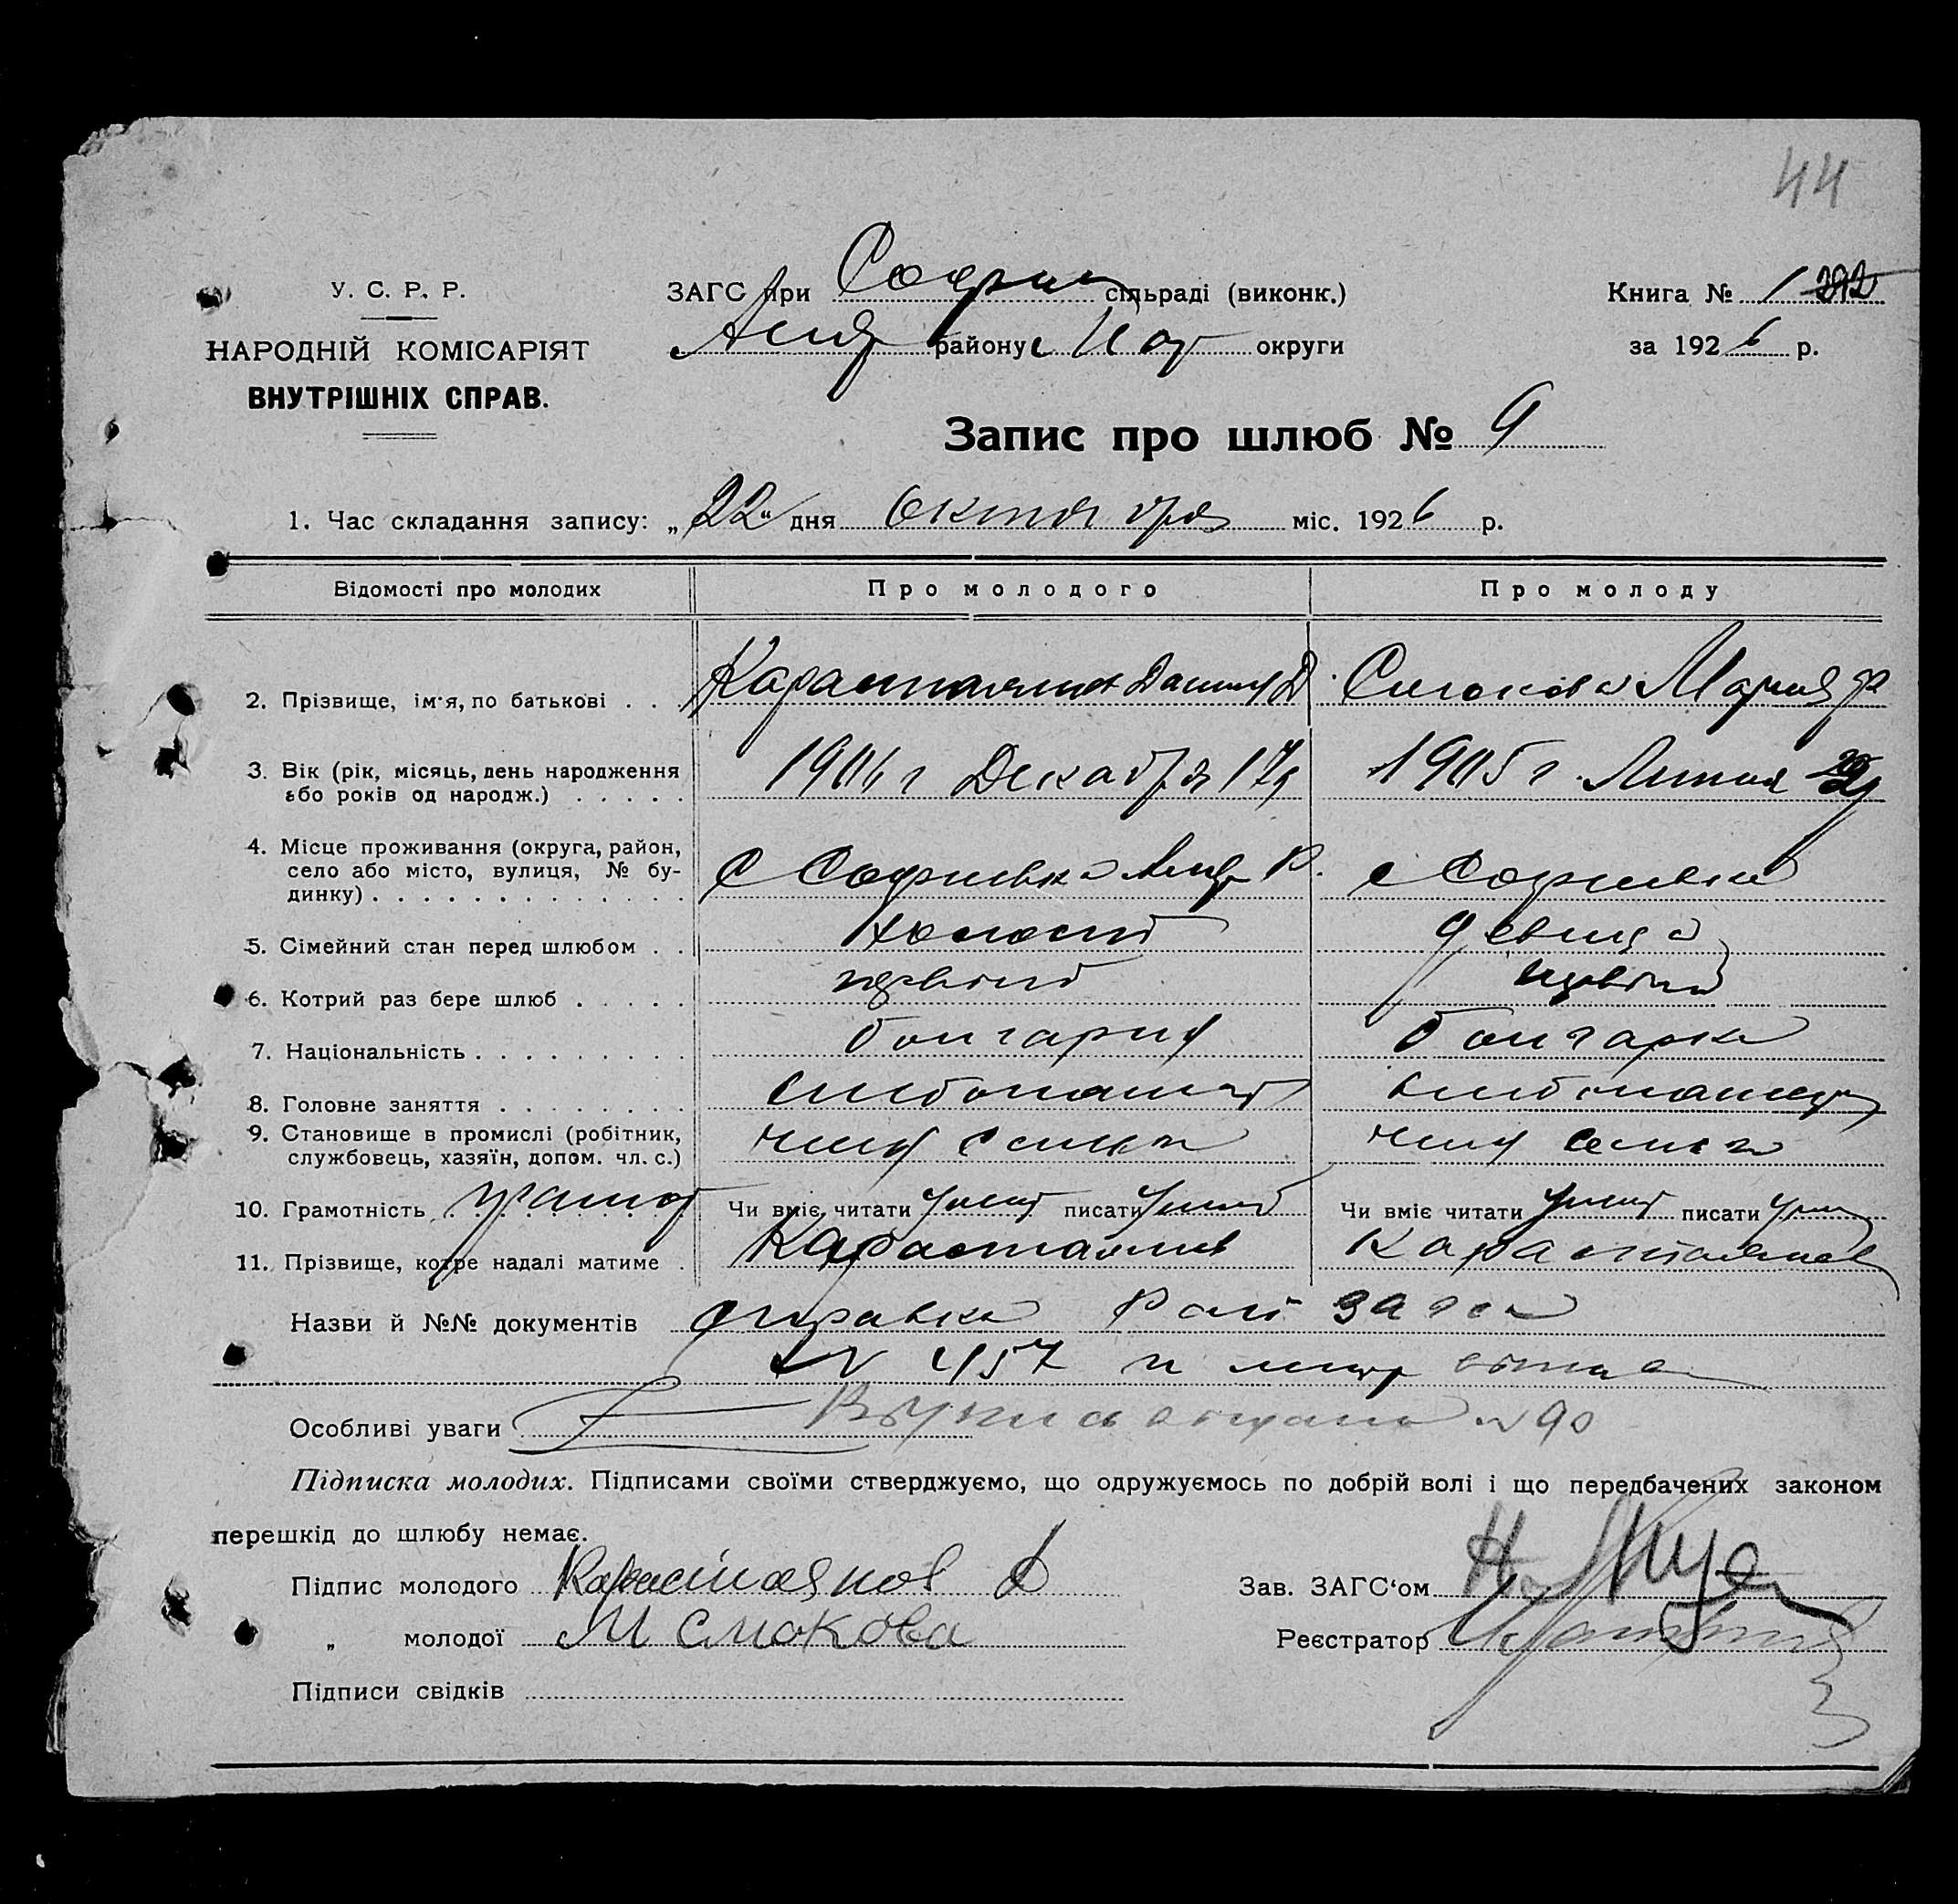 44
У. С. Р. Р.
НАРОДНІЙ КОМІСАРІЯТ
ВНУТРІШНІХ СПРАВ.
ЗАГС при Софи сільраді (виконк.)
району округи
Книга № 1
за 1926 р.
Запис про шлюб № 9
1. Час складання запису: „22“ дня октября міс. 1926 р.
Відомості про молодих Про молодого Про молоду
2. Прізвище, ім'я, по батькові . . Карастоянов Данил Д. Смокова Мария Ф
3. Вік (рік, місяць, день народження або років од народж.) . . . . . Декабря 17д 1905 г.
4. Місце проживання (округа, район, село або місто, вулиця, № будинку) . . . . . . . . . . . . . . с Софиевка р. с Софиевка
5. Сімейний стан перед шлюбом . . Холост девица
6. Котрий раз бере шлюб . . . . . первый первый
7. Національність . . . . . . . . . . болгарин болгарка
8. Головне заняття . . . . . . . . хлебопашец
9. Становище в промислі (робітник, службовець, хазяїн, допом. чл. с.) член семьи член семьи
10. Грамотність грамот Чи вміє читати умеет писати умеет Чи вміє читати умеет писати умеет
11. Прізвище, котре надалі матиме . Карастоянов Карастоянов
Назви й №№ документів справка загса
№ 457 и
Особливі уваги Выпись выдана № 90
Підписка молодих. Підписами своїми стверджуємо, що одружуємось по добрій волі і що передбачених законом
перешкід до шлюбу немає.
Підпис молодого Карастоянов Д
Зав. ЗАГС‘ом
„ молодої М Смокова
Реєстратор
Підписи свідків